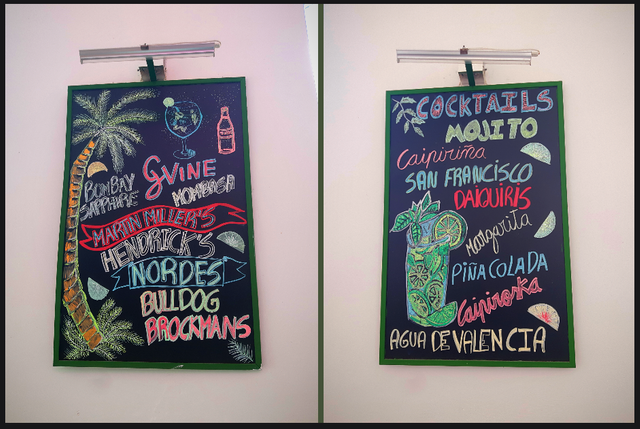 BOMBAY
SAPPHIRE
GVINE
MOMBASA
MARTIN MILLER'S
HENDRICK'S
NORDES
BULLDOG
BROCKMANS
COCKTAILS
MOJITO
Caipiriña
SAN FRANCISCO
DAIQUIRIS
Margarita
PIÑA COLADA
Caipiroska
AGUA DE VALENCIA